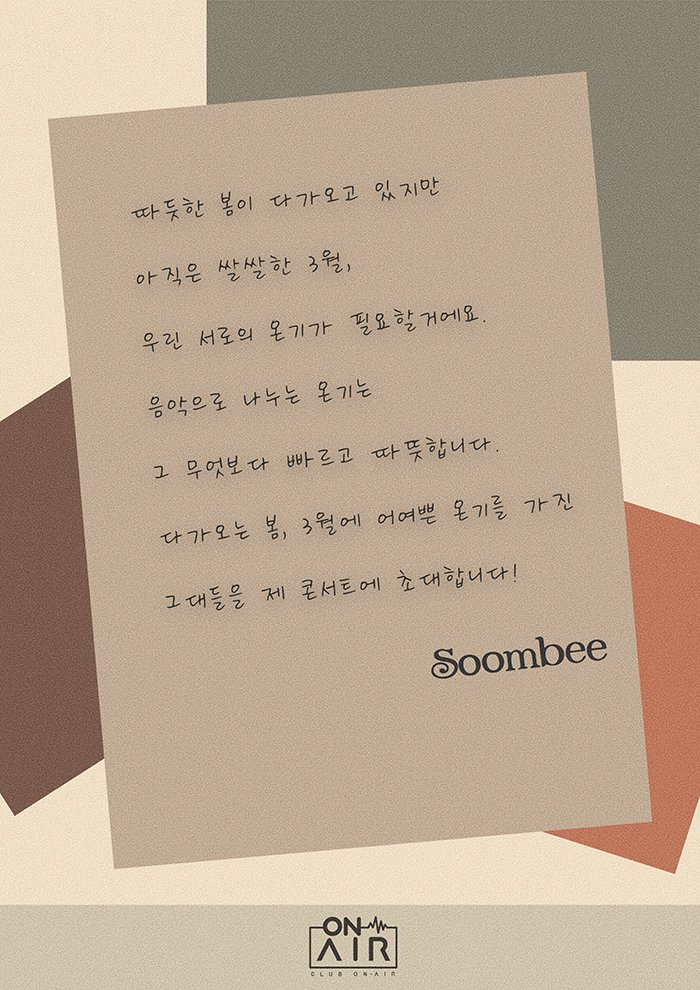 따듯한 봄이 다가오고 있지만
아직은 쌀쌀한 3월,
우린 서로의 온기가 필요할거에요.
음악으로 나누는 온기는
그 무엇보다 빠르고 따뜻합니다.
다가오는 봄, 3월에 어여쁜 온기를 가진
그대들을 제 콘서트에 초대합니다!
Soombee
ON
AIR
CLUB ON-AIR